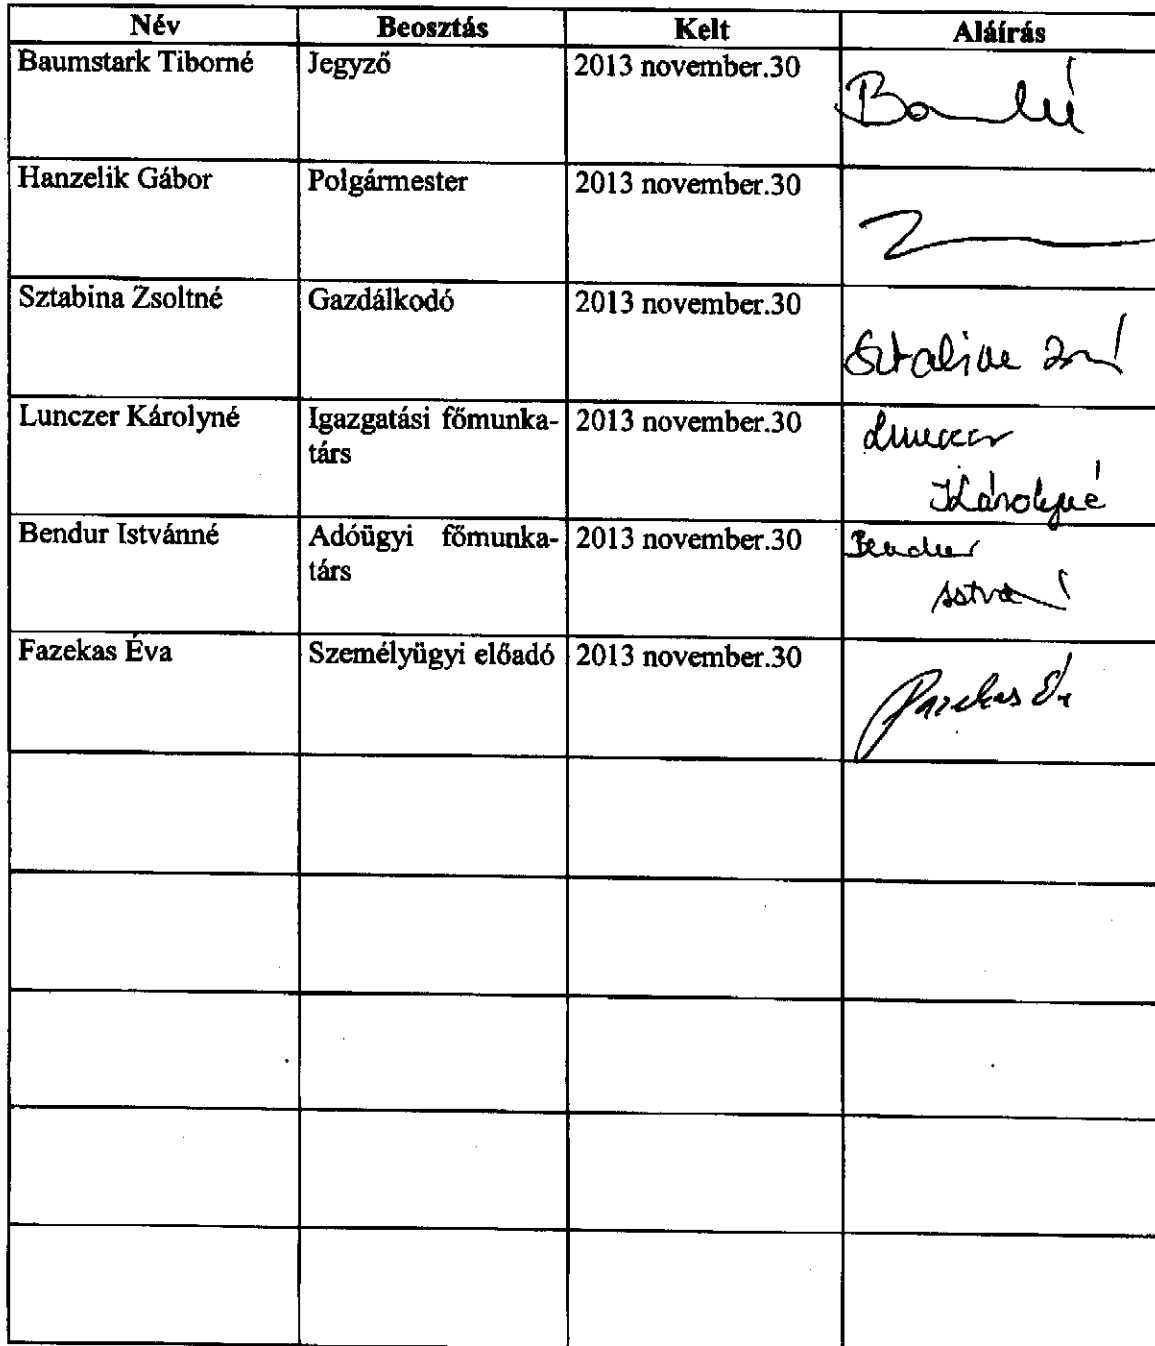 Név Beosztás Kelt Aláírás
Baumstark Tiborné Jegyző 2013 november.30
Hanzelik Gábor Polgármester 2013 november.30
Sztabina Zsoltné Gazdálkodó 2013 november.30
Lunczer Károlyné Igazgatási főmunka- 2013 november.30
társ
Károlyné
Bendur Istvánné Adóügyi főmunka- 2013 november.30
társ
Fazekas Éva Személyügyi előadó 2013 november.30
Fazekas Éva